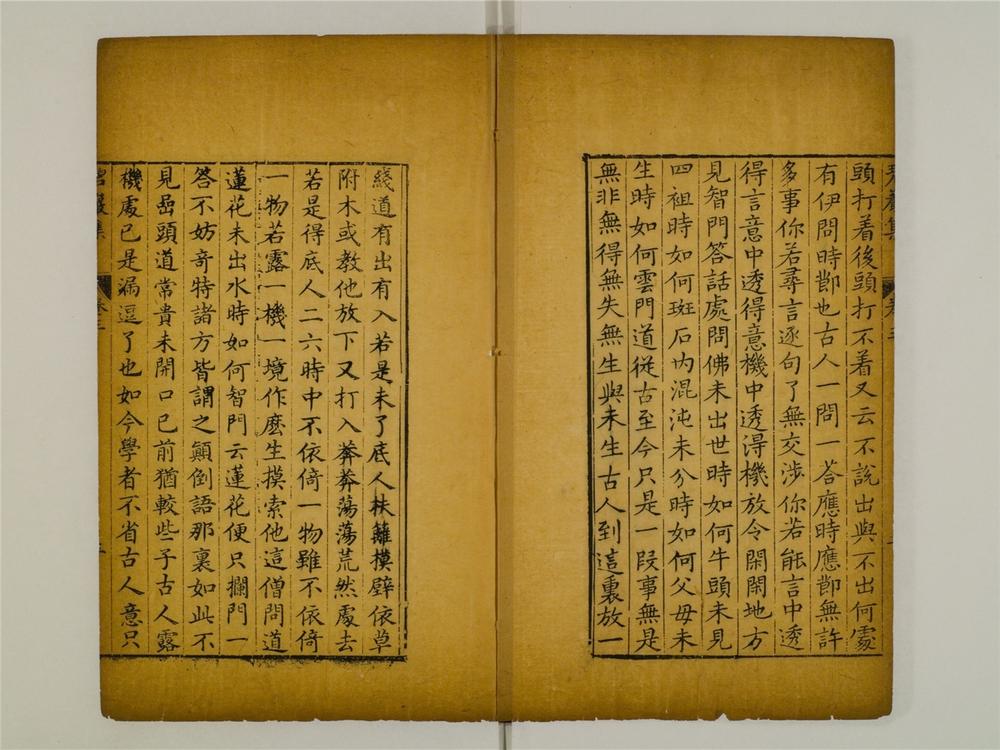 頭打着後頭打不着又云不說出與不出何處
有伊問時節也古人一問一答應時應節無許
多事你若尋言逐句了無交涉你若能言中透
得言意中透得意機中透得機放令閑閑地方
見智門答話處問佛未出世時如何牛頭未見
四祖時如何斑石內混沌未分時如何父母未
生時如何雲門道從古至今只是一段事無是
無非無得無失無生與未生古人到這裏放一
綫道有出有入若是未了底人扶籬摸壁依草
附木或教他放下又打入莽莽蕩蕩荒然處去
若是得底人二六時中不依倚一物雖不依倚
一物若露一機一境作麽生摸索他這僧問道
蓮花未出水時如何智門云蓮花便只攔門一
答不妨奇特諸方皆謂之顛倒語那裏如此不
見嵒頭道常貴未開口已前猶較些子古人露
機處已是漏逗了也如今學者不省古人意只